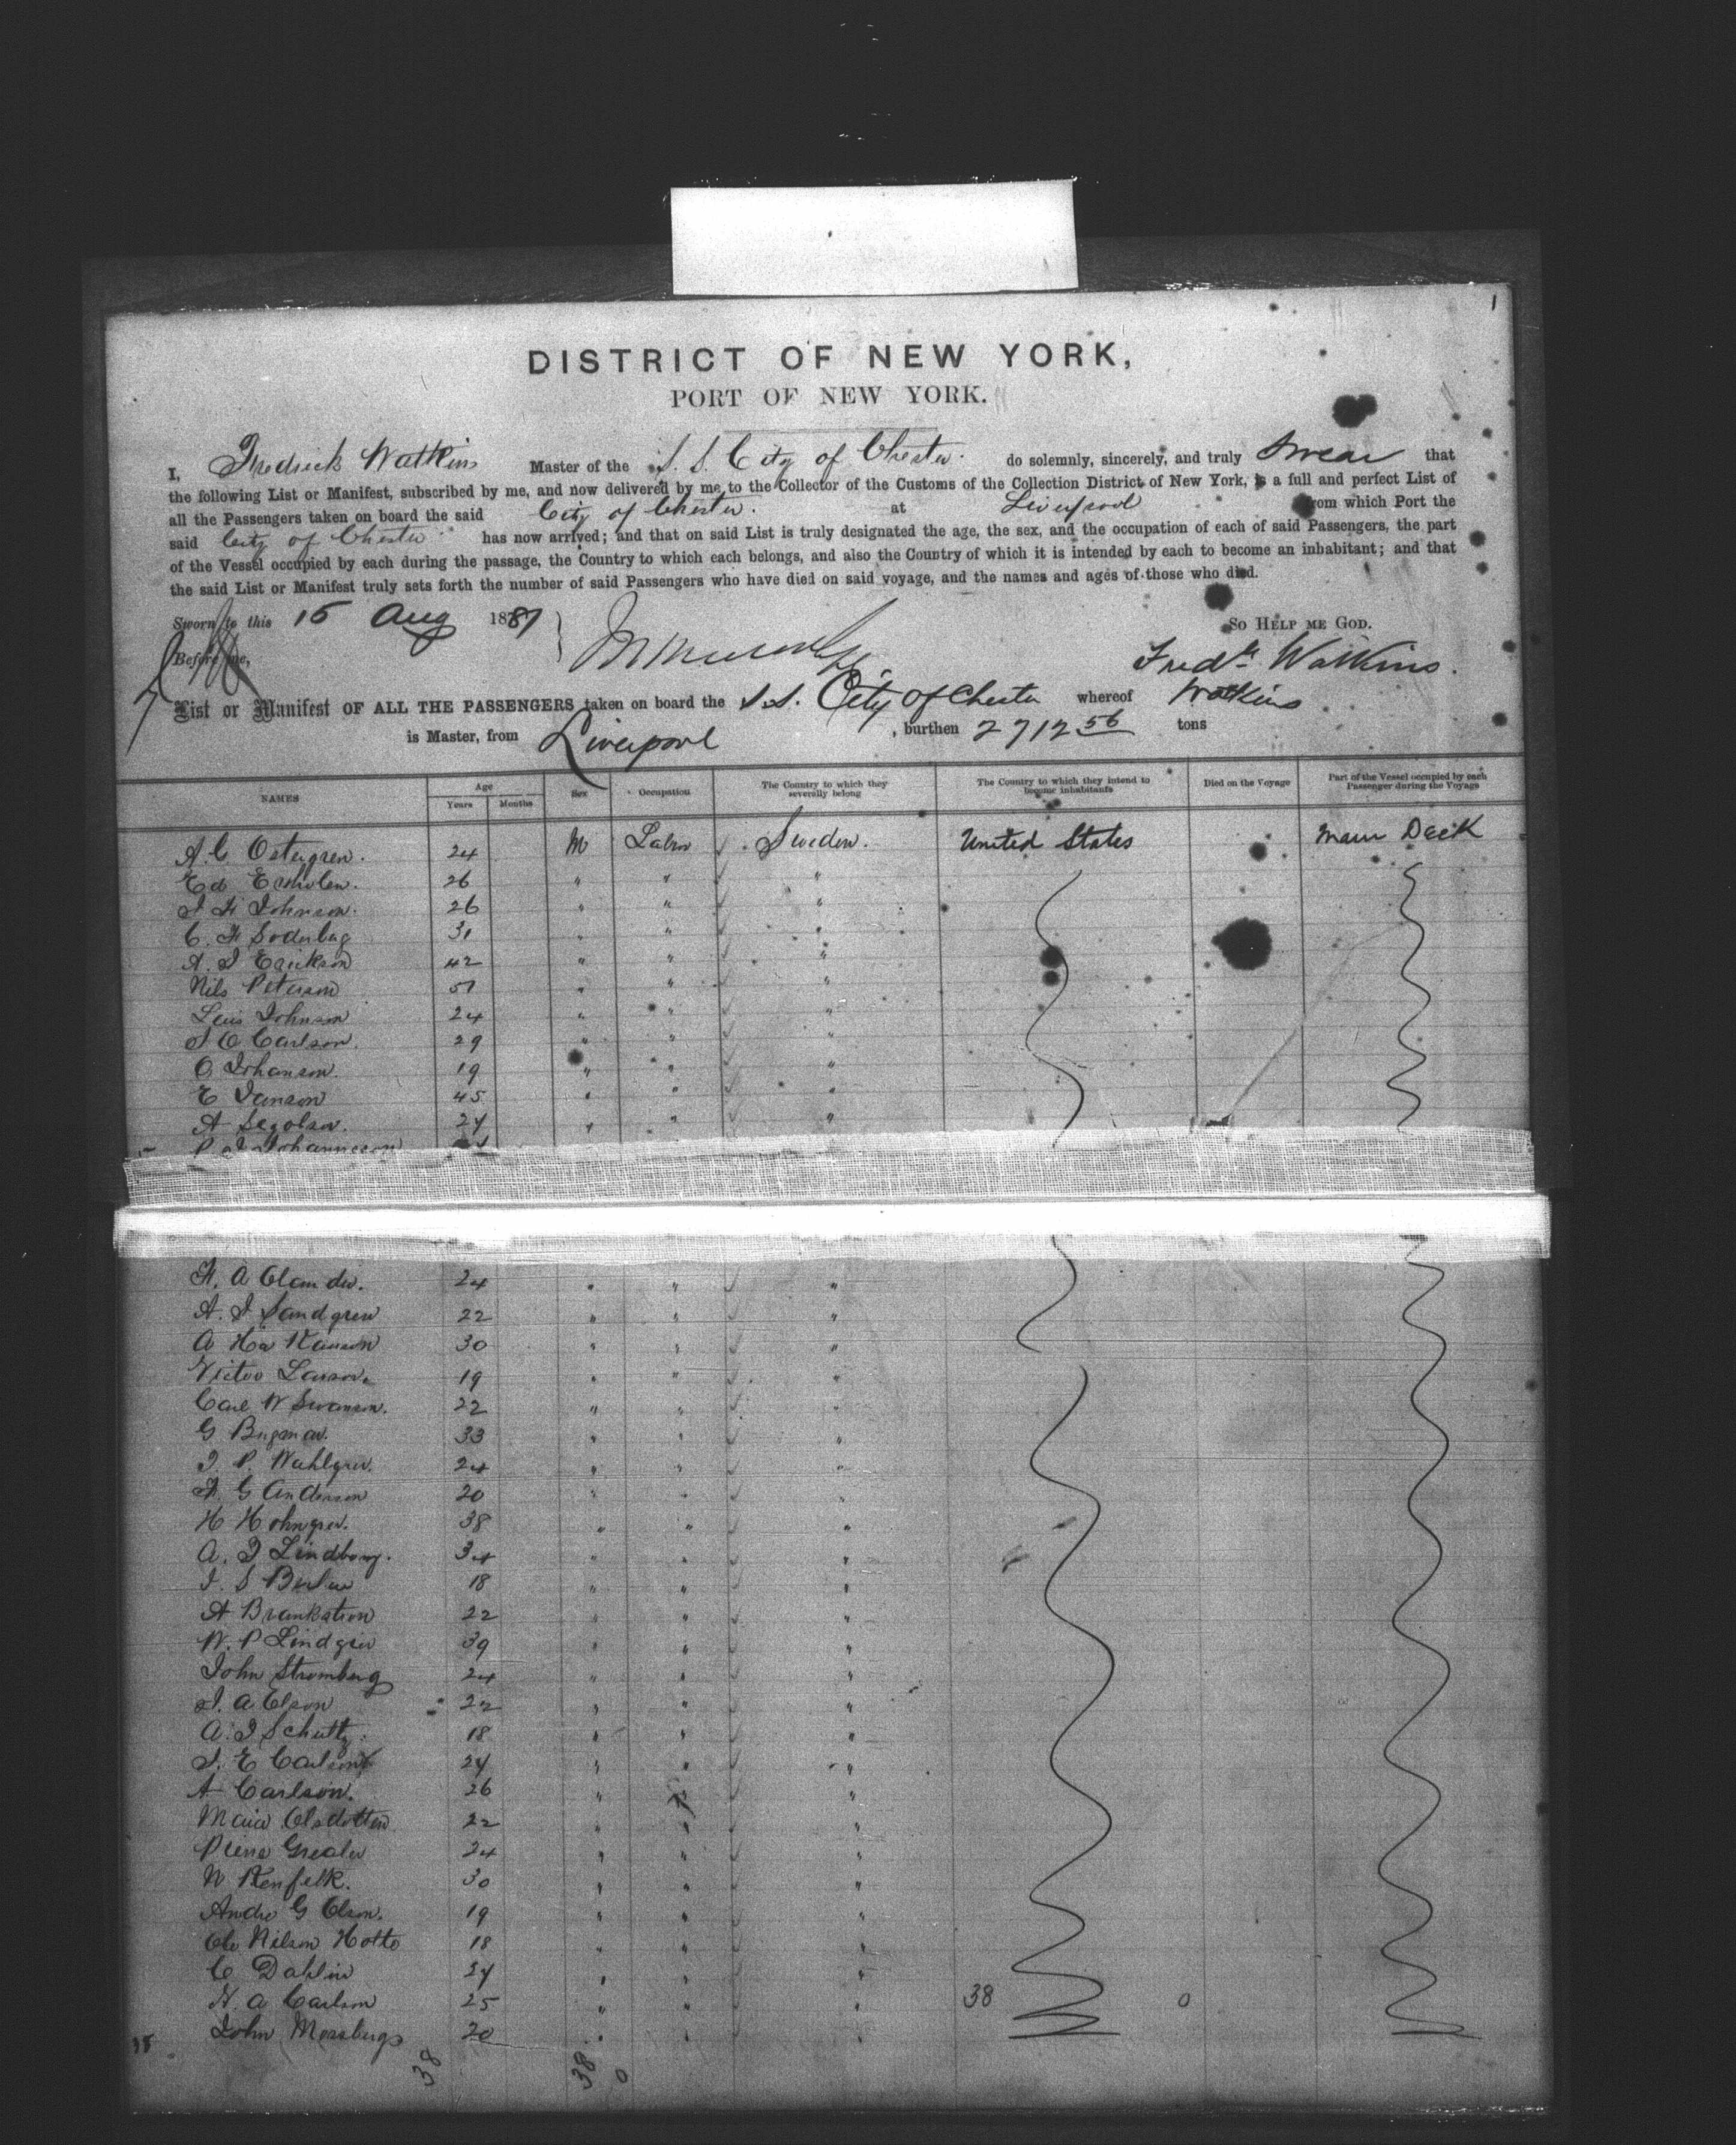 1
DISTRICT OF NEW YORK,
PORT OF NEW YORK.
I, Fredrick Watkins Master of the S. S. City of Chester. do solemnly, sincerely, and truly swear that
the following List or Manifest, subscribed by me, and now delivered by me to the Collector of the Customs of the Collection District of New York, is a full and perfect List of
all the Passengers taken on board the said City of Chester. at Liverpool from which Port the
said City of Chester has now arrived; and that on said List is truly designated the age, the sex, and the occupation of each of said Passengers, the part
of the Vessel occupied by each during the passage, the Country to which each belongs, and also the Country of which it is intended by each to become an inhabitant; and that
the said List or Manifest truly sets forth the number of said Passengers who have died on said voyage, and the names and ages of those who died.
Sworn to this 15 Aug 1887 So Help me God.
Before me, Fredk Watkins.
List or Manifest OF ALL THE PASSENGERS taken on board the S.S. City of Chester whereof Watkins
is Master, from Liverpool, burthen 2712 56 tons
NAMES Age Years Months Sex Occupation The Country to which they severally belong The Country to which they intend to become inhabitants Died on the Voyage Part of the Vessel occupied by each Passenger during the Voyage
A. C Ostergren. 24 M Labor Sweden. United States Main Deck
Ed 26 " " "
J H Johnson. 26 " " "
C. H Soderberg 31 " " "
A. J Erickson 42 " " "
Nils Peterson 51 " " "
Leis Johnson 24 " " "
J O Carlson. 29 " " "
O Johanson. 19 " " "
E Janson 45 " " "
A Segolson. 24 " " "
P J Johannesson
H. A Olander. 24 " " "
A. J Sandgren 22 " " "
A 30 " " "
Victor Larson. 19 " " "
Carl W Swanson. 22 " " "
G 33 " " "
J. P. Wahlgren. 24 " " "
A G Anderson 20 " " "
H Hohngren. 38 " " "
A. J Lindborg. 34 " " "
J. S 18 " " "
A 22 " " "
W. P Lindgren 39 " " "
John Stromberg 24 " " "
J. A Olson 22 " " "
A. J Schultz. 18 " " "
J. E Carlson 24 " " "
A Carlson. 26 " " "
Maria Olsdotten 22 " " "
24 " " "
N 30 " " "
Andre G Olson. 19 " " "
Ole Nilson Hotto 18 " " "
C Dahlin 24 " " "
H. A Carlson 25 " " " 38 0
John Mossberg 20 " " "
38 38 0